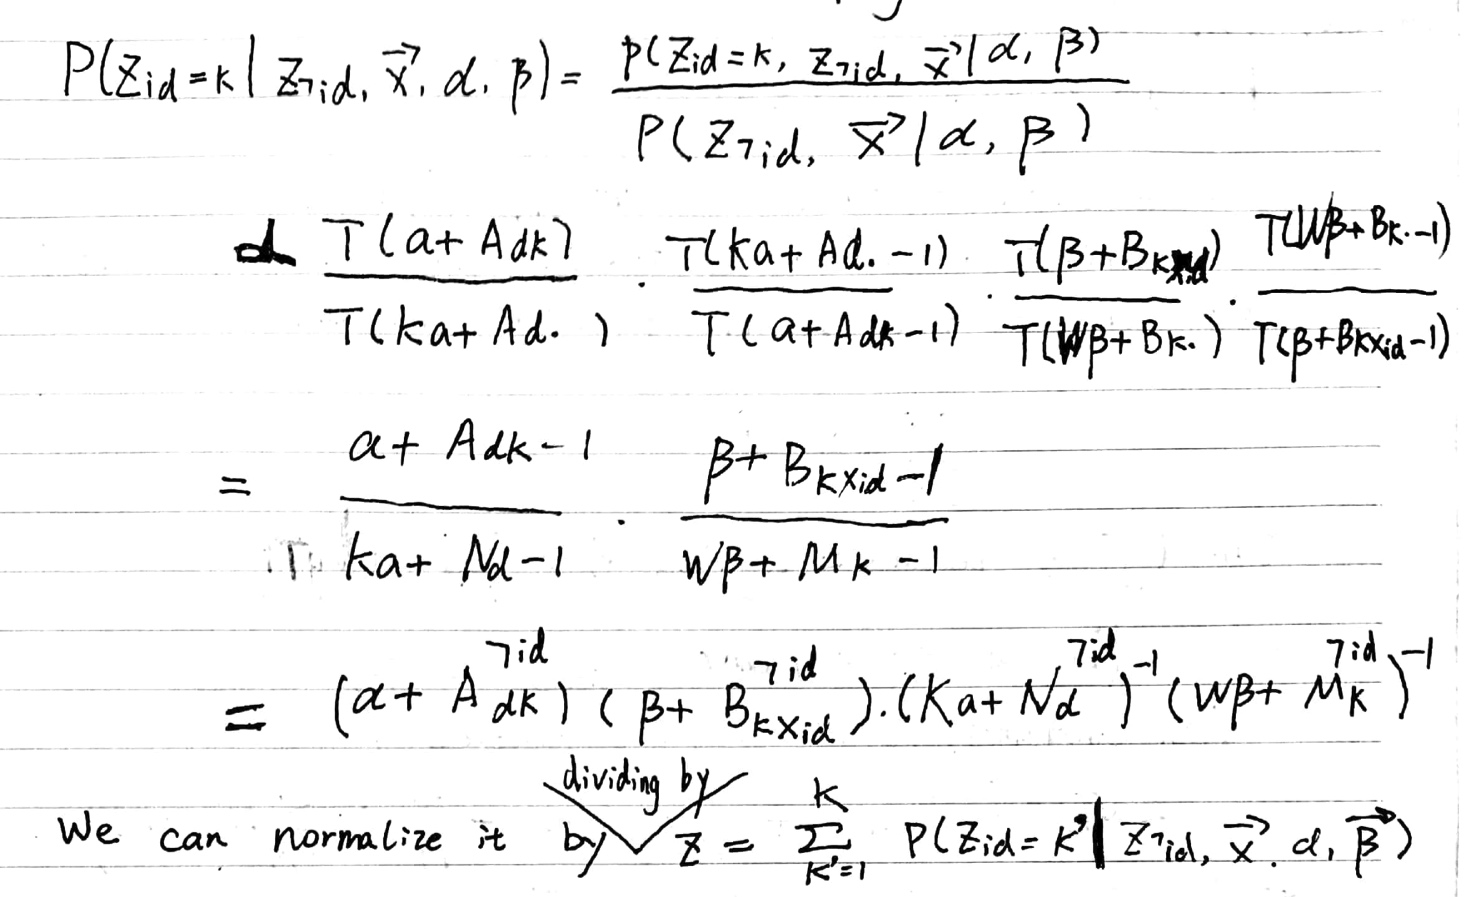 P(Zid=k | Z¬id, x⃗, α, β) = p(Zid=k, Z¬id, x⃗ | α, β) / P(Z¬id, x⃗ | α, β)
∝ Γ(α+Adk) / Γ(kα+Ad.) · Γ(kα+Ad.-1) / Γ(α+Adk-1) · Γ(β+Bkxid) / Γ(Wβ+Bk.) · Γ(Wβ+Bk.-1) / Γ(β+Bkxid-1)
= (α+Adk-1) / (kα+Nd-1) · (β+Bkxid-1) / (Wβ+Mk-1)
= (α+Adk^¬id) (β+Bkxid^¬id) · (Kα+Nd^¬id)^-1 (Wβ+Mk^¬id)^-1
We can normalize it by dividing by Z = Σ_{k'=1}^{K} P(Zid=k' | Z¬id, x⃗, α, β⃗)